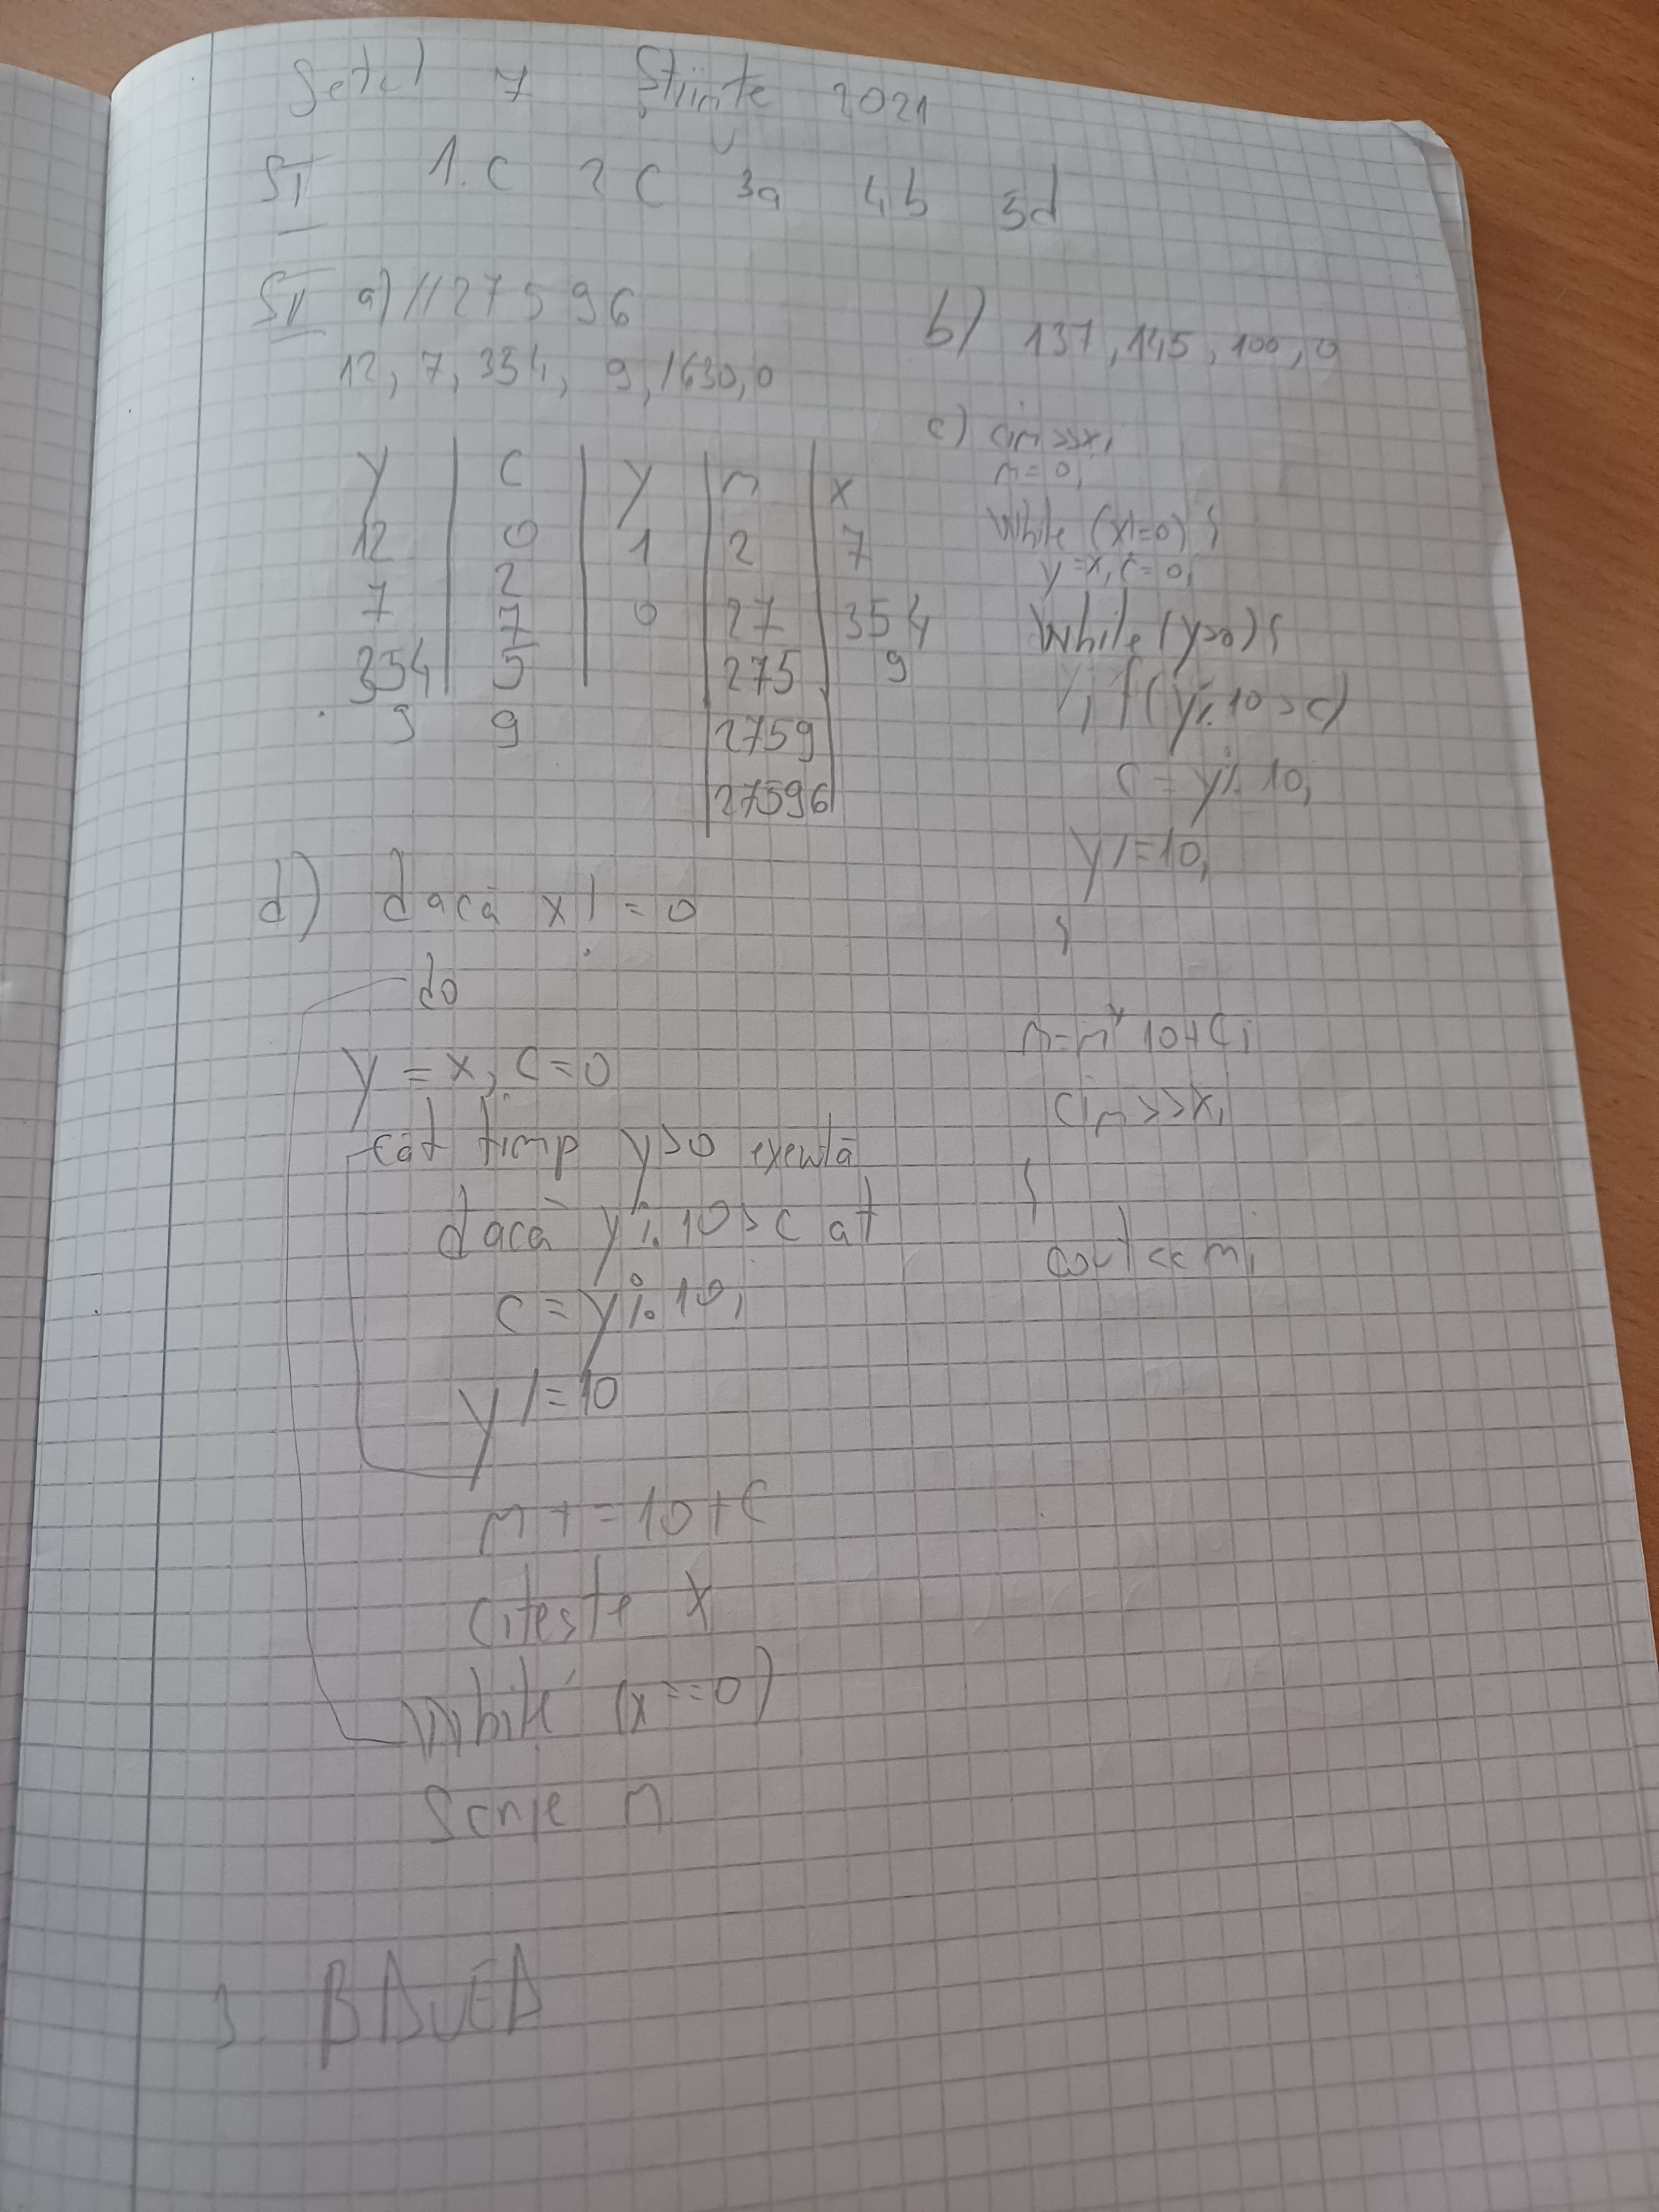 Setul 7 Științe 2021
SI 1.C 2C 3a 4b 5d
SII a) // 27596
12, 7, 354, 9, 1630, 0
y c y n x
12 0 1 2 7
7 2
7 0 27 354
354 5 275 9
9 9 2759
27596
b) 137, 145, 100, 0
c) cin>>x;
n=0;
while (x!=0) {
y=x; c=0;
while (y>0) {
if (y%10>c)
c=y%10;
y/=10;
}
n=n*10+c;
cin>>x;
}
cout<<n;
d) dacă x!=0
do
y=x; c=0
cât timp y>0 execută
dacă y%10>c at
c=y%10;
y/=10
n+=10+c
citeste x
while (x==0)
Scrie n
3.